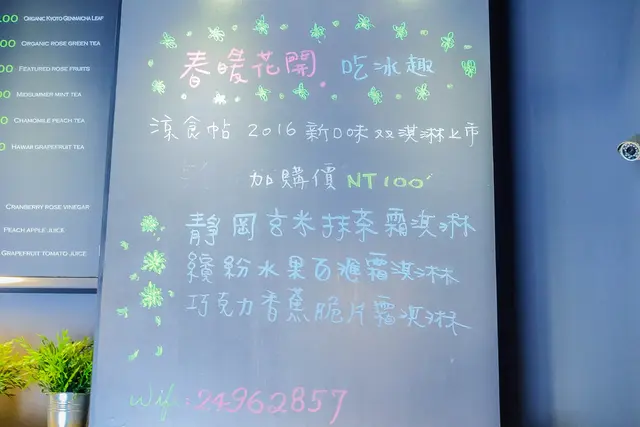 .00 ORGANIC KYOTO GENMAICHA LEAF
00 ORGANIC ROSE GREEN TEA
00 FEATURED ROSE FRUITS
00 MIDSUMMER MINT TEA
0 CHAMOMILE PEACH TEA
0 HAWAII GRAPEFRUIT TEA
CRANBERRY ROSE VINEGAR
PEACH APPLE JUICE
GRAPEFRUIT TOMATO JUICE
春暖花開 吃冰趣
涼食帖 2016新口味双淇淋上市
加購價 NT100
靜岡玄米抹茶霜淇淋
繽紛水果百滙霜淇淋
巧克力香蕉脆片霜淇淋
Wifi:24962857